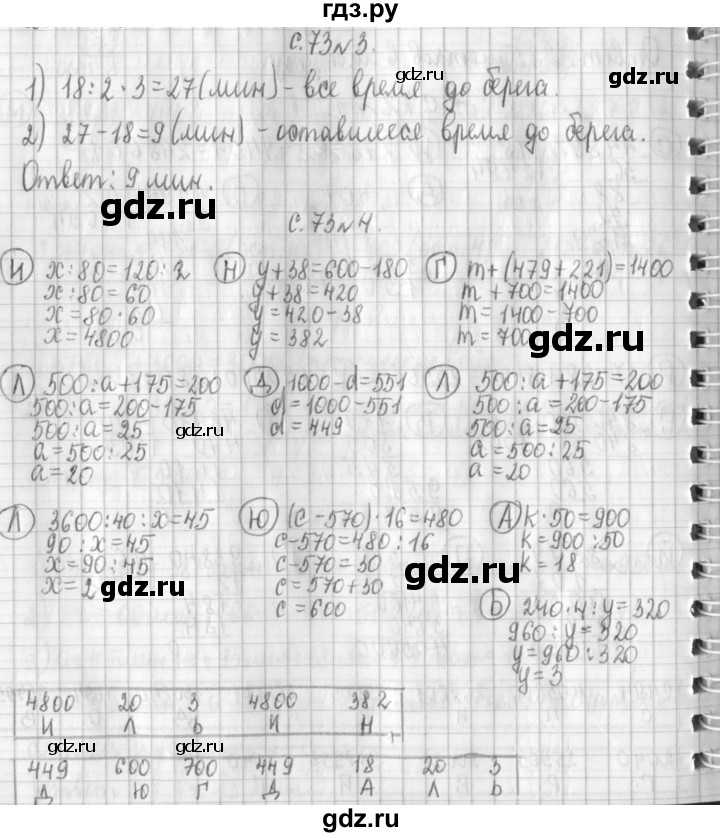 гдз.ру
с.73 N 3.
1) 18:2·3=27(мин)-все время до берега.
2) 27-18=9(мин) - оставшееся время до берега.
Ответ: 9 мин.
с.73 N 4.
И x:80=120:2
x:80=60
x=80·60
x=4800
Н y+38=600-180
y+38=420
y=420-38
y=382
Г m+(479+221)=1400
m+700=1400
m=1400-700
m=700
Л 500:a+175=200
500:a=200-175
500:a=25
a=500:25
a=20
Д 1000-d=551
d=1000-551
d=449
Л 500:a+175=200
500:a=200-175
500:a=25
a=500:25
a=20
Л 3600:40:x=45
90:x=45
x=90:45
x=2
Ю (c-570)·16=480
c-570=480:16
c-570=30
c=570+30
c=600
А k·50=900
k=900:50
k=18
Ь 240·4:y=320
960:y=320
y=960:320
y=3
4800 20 3 4800 382
И Л Ь И Н
449 600 700 449 18 20 3
Д Ю Г Д А Л Ь
gdz.ru
gdz.ru
gdz.ru
gdz.ru
gdz.ru
gdz.ru
gdz.ru
gdz.ru
gdz.ru
gdz.ru
gdz.ru